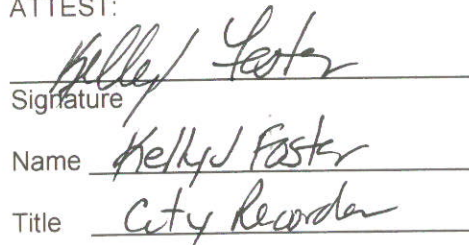 ATTEST:
Kelly J Foster
Signature
Name Kelly J Foster
Title City Recorder